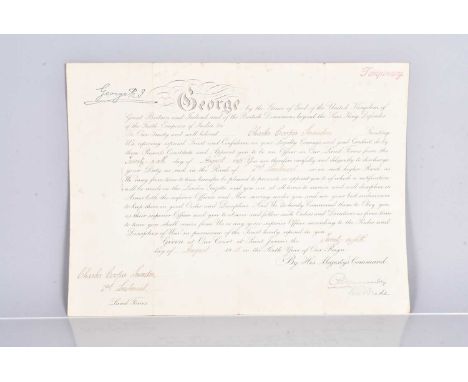 Temporary
George R.I.
George by the Grace of God of the United Kingdom of
Great Britain and Ireland and of the British Dominions beyond the Seas King, Defender
of the Faith, Emperor of India &c
To Our Trusty and well beloved Charles Greeting
We reposing especial Trust and Confidence in your Loyalty, Courage, and good Conduct, do by
these Presents Constitute and Appoint you to be an Officer in Our Land Forces from the
day of August 191 You are therefore carefully and diligently to discharge
your Duty as such in the Rank of 2nd Lieutenant or in such higher Rank as
We may from time to time hereafter be pleased to promote or appoint you to of which a notification
will be made in the London Gazette and you are at all times to exercise and well discipline in
Arms both the inferior Officers and Men serving under you and use your best endeavours
to keep them in good Order and Discipline. And We do hereby Command them to Obey you
as their superior Officer and you to observe and follow such Orders and Directions as from time
to time you shall receive from Us or any your superior Officer according to the Rules and
Discipline of War in pursuance of the Trust hereby reposed in you
Given at Our Court at Saint James's the
day of August 191 in the Sixth Year of Our Reign
By His Majesty's Command
Charles
2nd Lieutenant
Land Forces